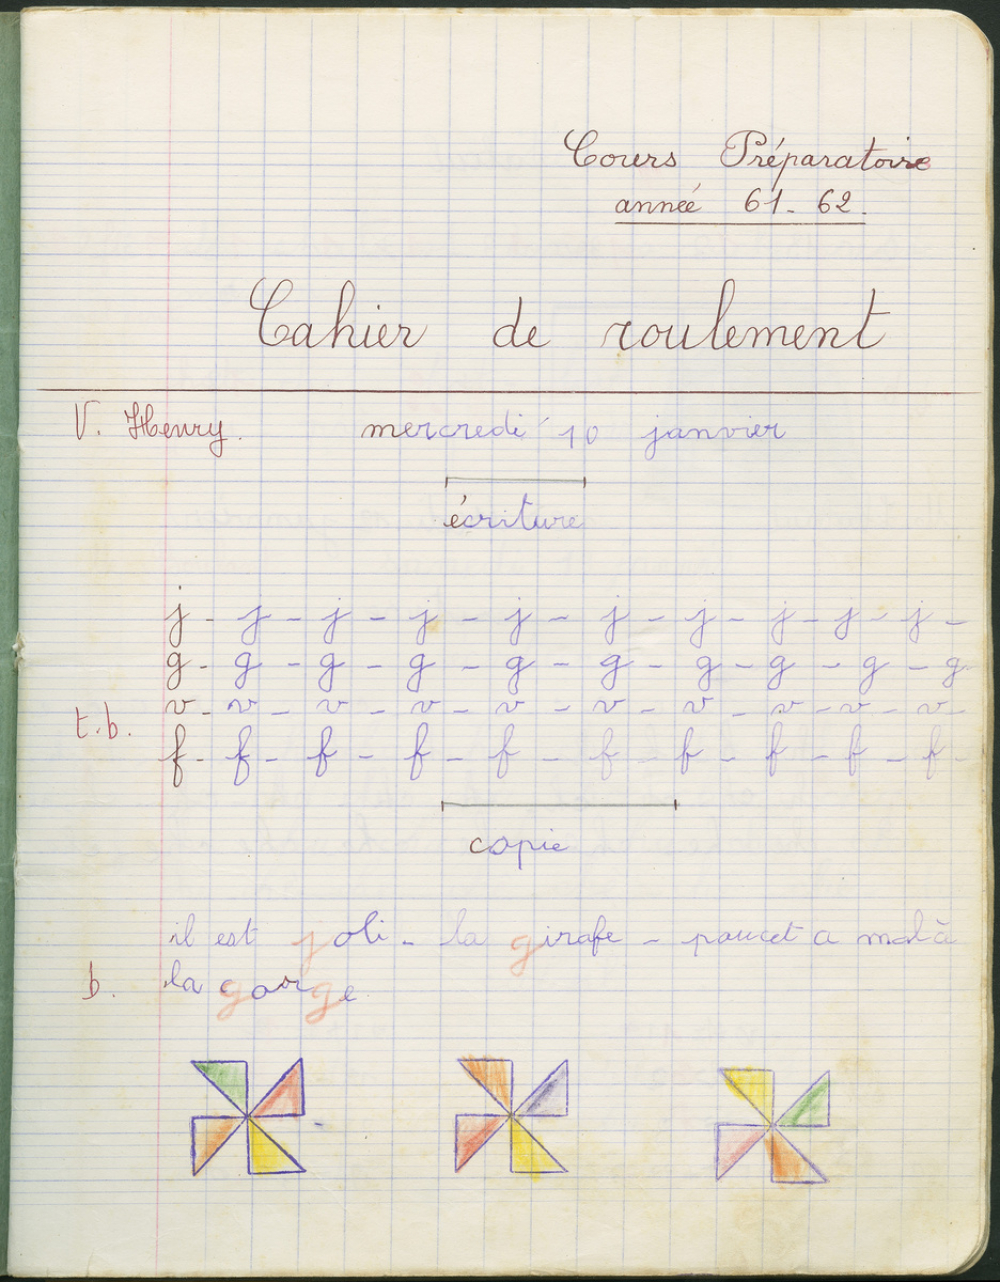 Cours Préparatoire
année 61-62.
Cahier de roulement
V. Henry. mercredi 10 janvier
écriture
j - j - j - j - j - j - j - j - j - j -
g - g - g - g - g - g - g - g - g - g
t.b. v - v - v - v - v - v - v - v - v - v -
f - f - f - f - f - f - f - f - f - f -
copie
il est joli - la girafe - poucet a mal à
b. la gorge